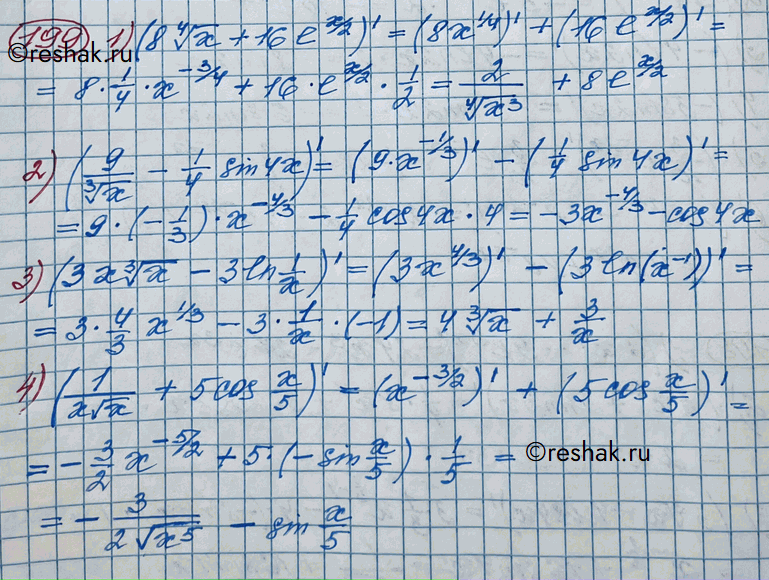 ©reshak.ru
199 1) (8∜x + 16e^(x/2))' = (8x^(1/4))' + (16e^(x/2))' =
= 8·1/4·x^(-3/4) + 16·e^(x/2)·1/2 = 2/∜(x³) + 8e^(x/2)
2) (9/∛x − 1/4 sin4x)' = (9·x^(-1/3))' − (1/4 sin4x)' =
= 9·(−1/3)·x^(-4/3) − 1/4 cos4x·4 = −3x^(-4/3) − cos4x
3) (3x∛x − 3ln 1/x)' = (3x^(4/3))' − (3ln(x^(-1)))' =
= 3·4/3 x^(1/3) − 3·1/x·(−1) = 4∛x + 3/x
4) (1/(x√x) + 5cos x/5)' = (x^(-3/2))' + (5cos x/5)' =
= −3/2 x^(-5/2) + 5·(−sin x/5)·1/5 =
©reshak.ru
= − 3/(2√(x⁵)) − sin x/5